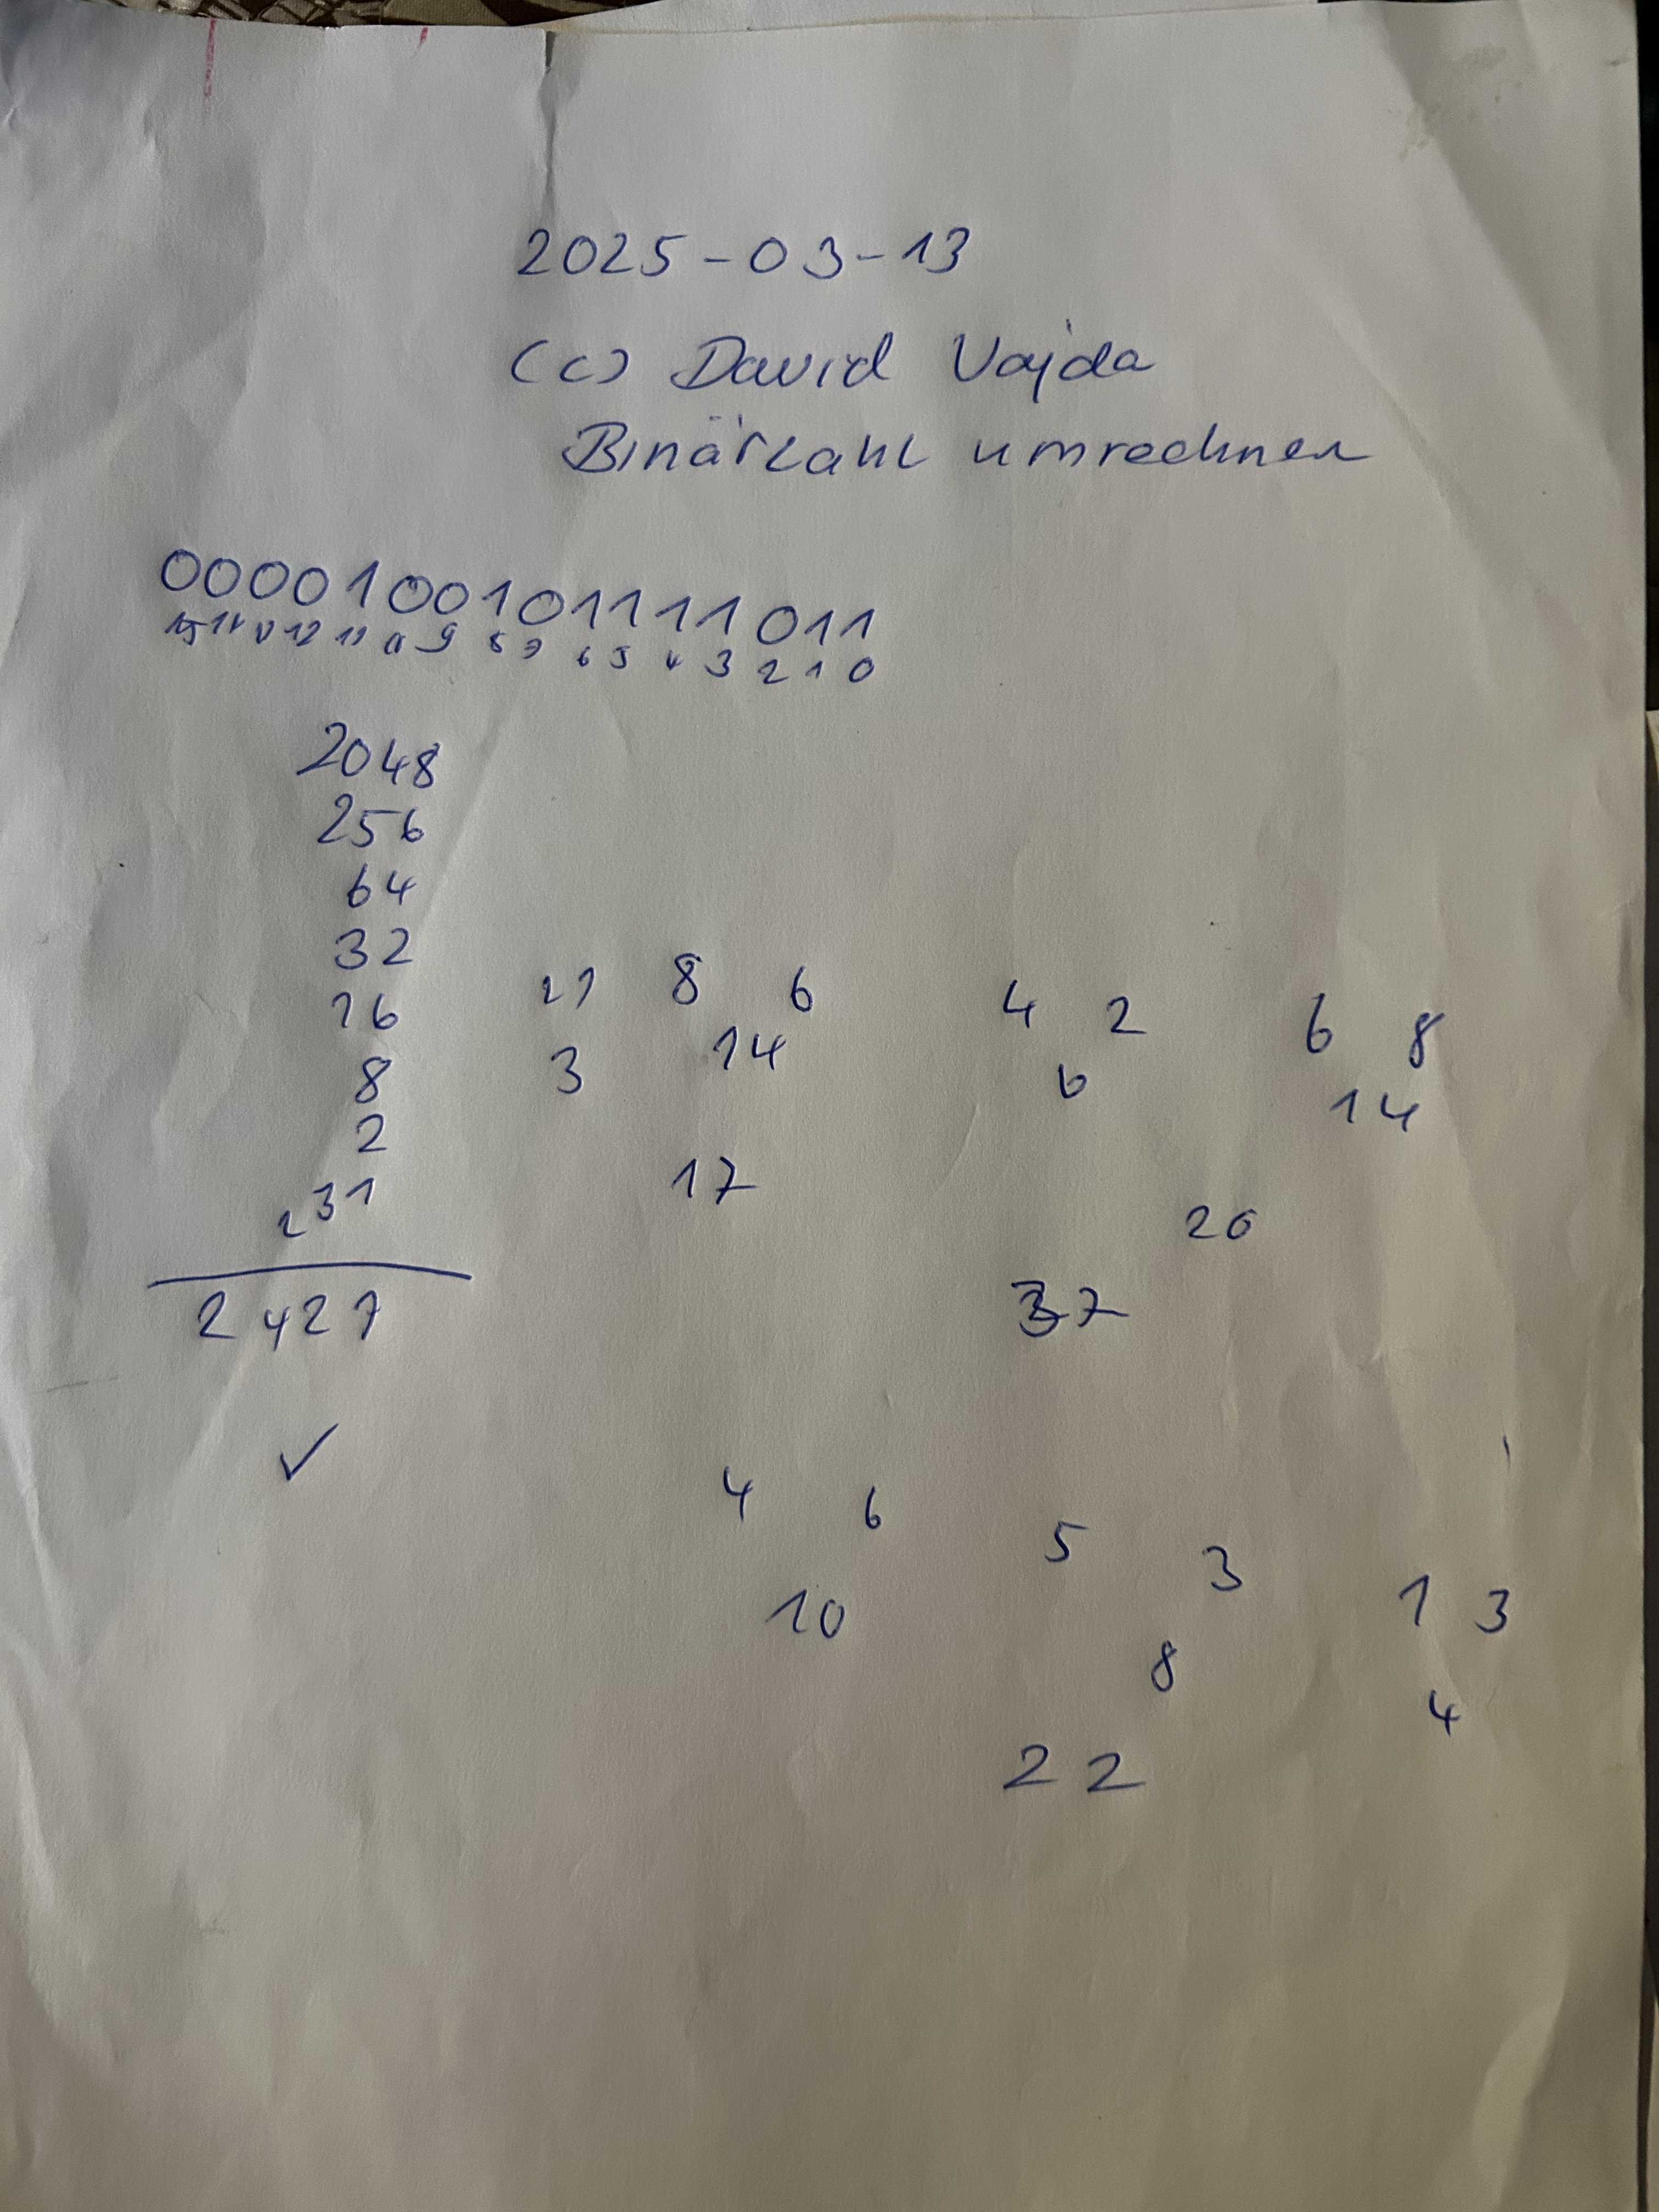 2025-03-13
(c) David Vajda
Binärzahl umrechnen
0000100101111011
15 14 13 12 11 10 9 8 7 6 5 4 3 2 1 0
2048
256
64
32
16
8
2
1
2 3
2427
✓
2 1 8 6 4 2 6 8
3 14 6 14
17 20
37
4 6 5 3 1 3
10 8 4
22